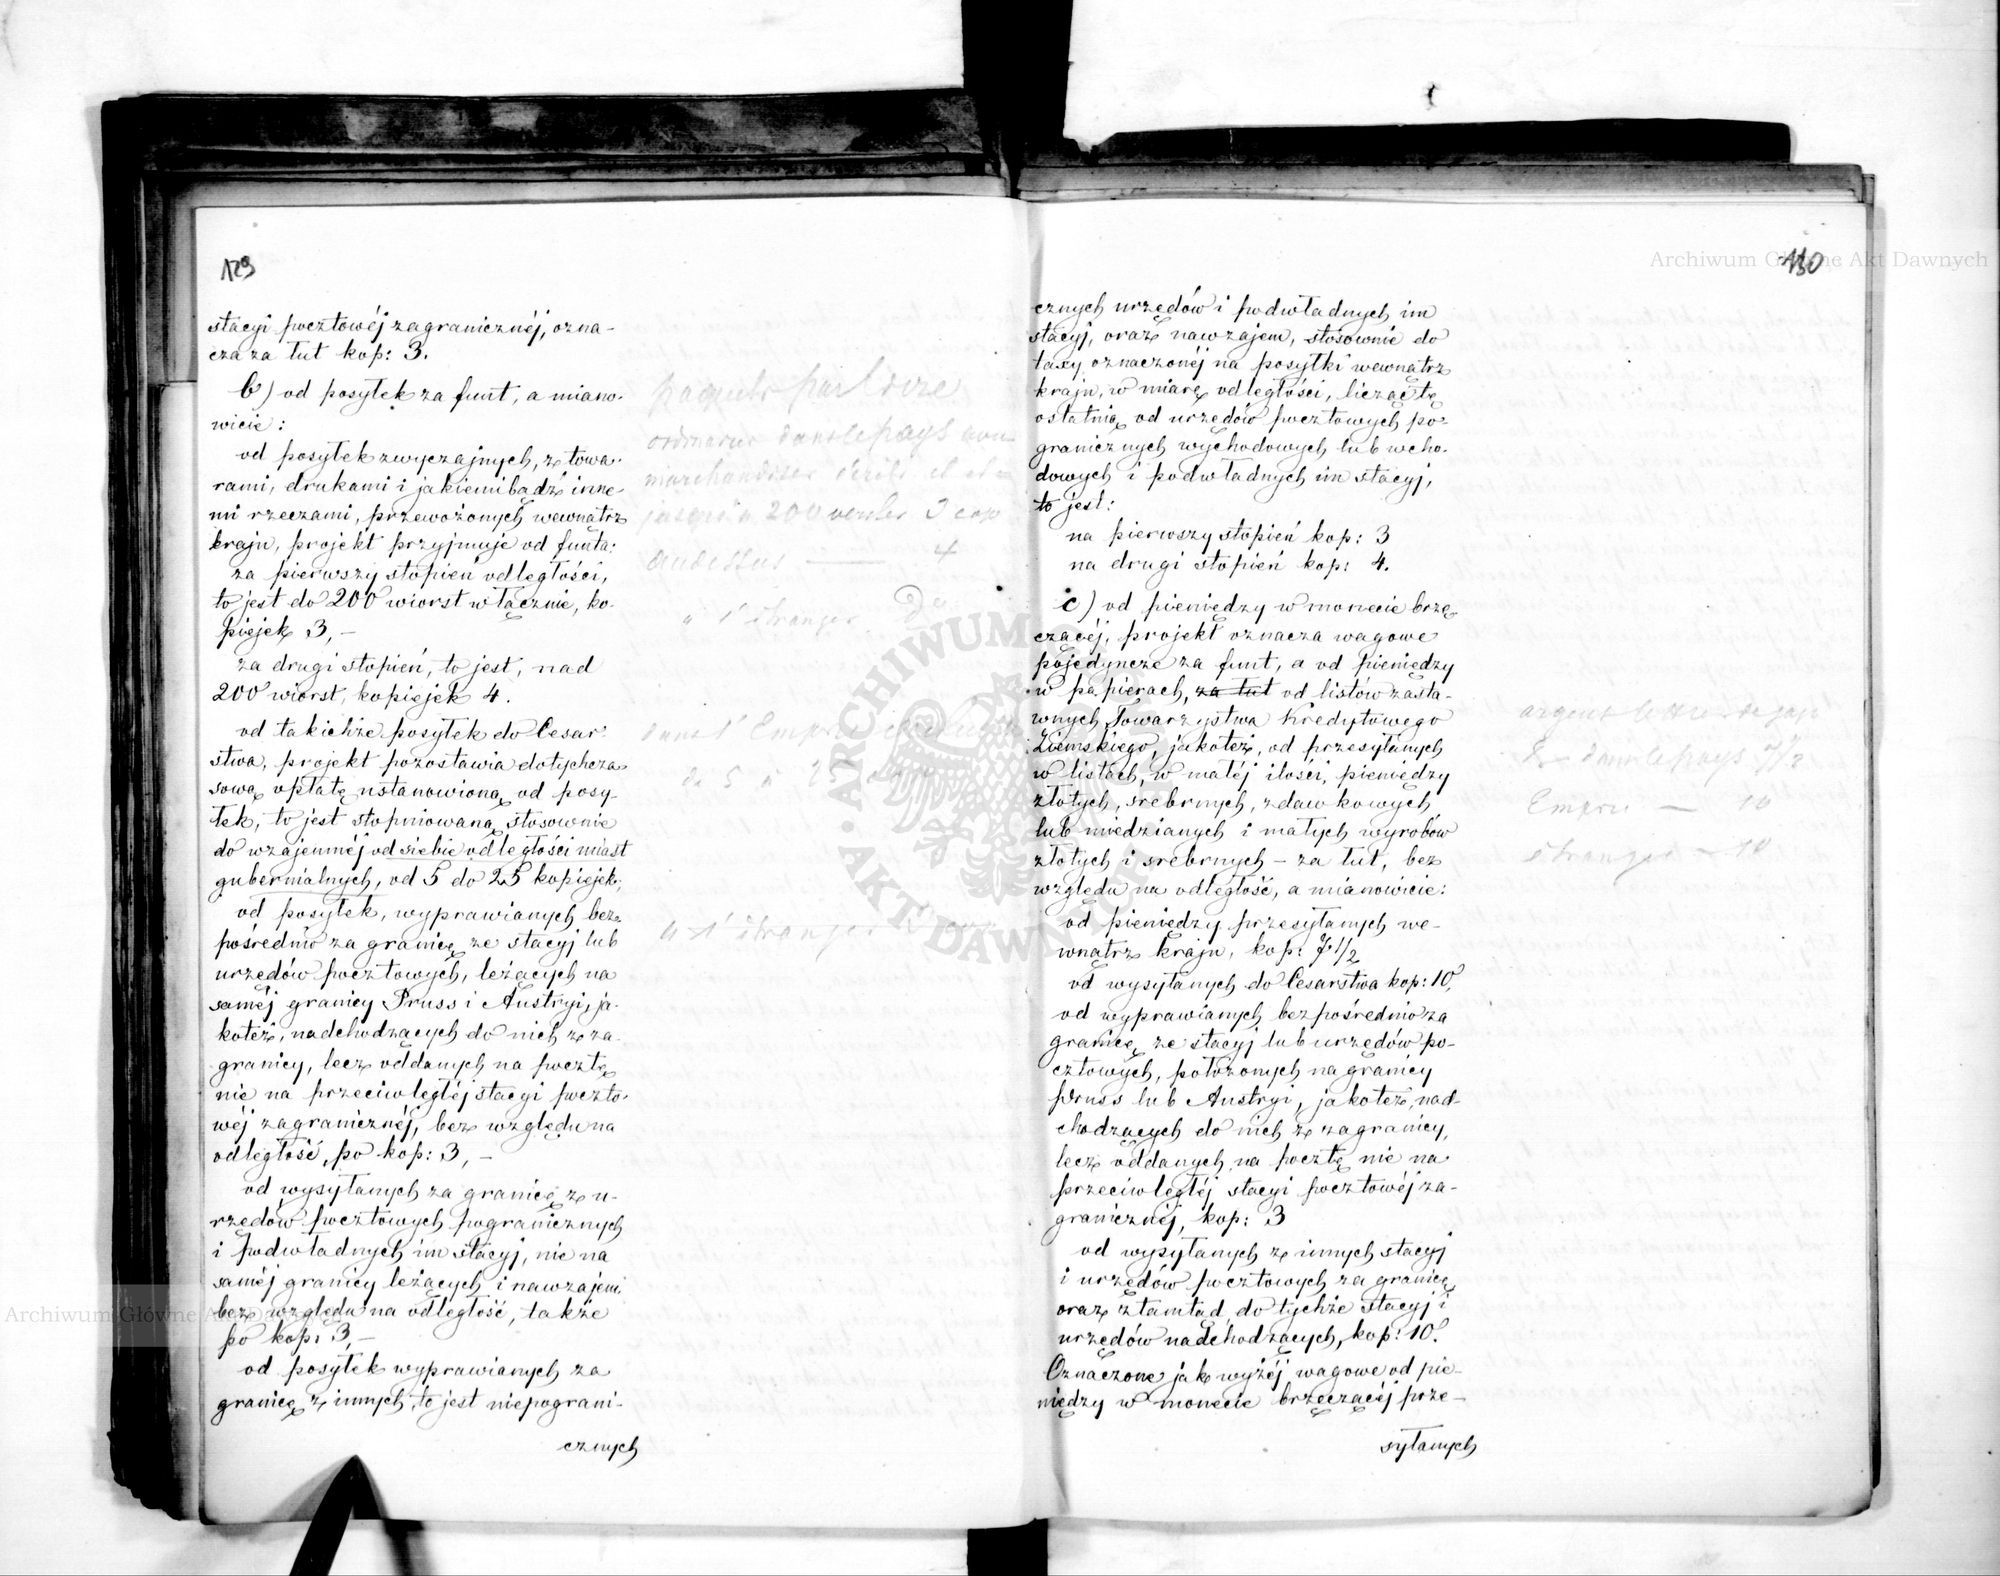 129
stacyi pocztowéj zagranicznéj, ozna-
cza za łut kop: 3.
b) od posyłek za funt, a miano-
wicie:
od posyłek zwyczajnych, z towa-
rami, drukami i jakiemibądź inne-
mi rzeczami, przewożonych wewnątrz
kraju, projekt przyjmuje od funta:
za pierwszy stopień odległości,
to jest do 200 wiorst włącznie, ko-
piejek 3,—
za drugi stopień, to jest, nad
200 wiorst, kopiejek 4.
od takichże posyłek do Cesar-
stwa, projekt pozostawia dotychcza-
sową opłatę ustanowioną od posy-
łek, to jest stopniowaną stosownie
do wzajemnéj od siebie odległości miast
gubernialnych, od 5 do 25 kopiejek,
od posyłek, wyprawianych bez-
pośrednio za granicę ze stacyj lub
urzędów pocztowych, leżących na
saméj granicy Pruss i Austryi, ja-
koteż, nadchodzących do nich z za-
granicy, lecz oddanych na pocztę
nie na przeciwległéj stacyi poczto-
wéj zagranicznéj, bez względu na
odległość, po kop: 3,—
od wysyłanych za granicę z u-
rzędów pocztowych pogranicznych
i podwładnych im stacyj, nie na
saméj granicy leżących i nawzajem
bez względu na odległość, także
po kop: 3,—
od posyłek wyprawianych za
granicę z innych, to jest niepograni-
cznych
paquets par livre
ordinaires dans le pays avec
marchandises
jusqu'à 200 verstes 3 cop
audessus — 4
à l'étranger do
dans l'Empire
de 5 à 25 cop
à l'étranger
130
cznych urzędów i podwładnych im
stacyj, oraz nawzajem, stosownie do
taxy oznaczonéj na posyłki wewnątrz
kraju, w miarę odległości, licząc tę
ostatnią od urzędów pocztowych po-
granicznych wychodowych lub wcho-
dowych i podwładnych im stacyj,
to jest:
na pierwszy stopień kop: 3
na drugi stopień kop: 4.
c) od pieniędzy w monecie brzę-
czącéj, projekt oznacza wagowe
pojedyncze za funt, a od pieniędzy
w papierach, za łut od listów zasta-
wnych Towarzystwa Kredytowego
Ziemskiego, jakoteż, od przesyłanych
w listach, w małéj ilości, pieniędzy
złotych, srebrnych, zdawkowych
lub miedzianych i małych wyrobów
złotych i srebrnych – za łut, bez
względu na odległość, a mianowicie:
od pieniędzy przesyłanych we-
wnątrz kraju, kop: 7 1/2
od wysyłanych do Cesarstwa kop: 10,
od wyprawianych bezpośrednio za
granicę ze stacyj lub urzędów po-
cztowych, położonych na granicy
Pruss lub Austryi, jakoteż, nad-
chodzących do nich z zagranicy,
lecz oddanych na pocztę nie na
przeciwległéj stacyi pocztowéj za-
granicznéj, kop: 3
od wysyłanych z innych stacyj
i urzędów pocztowych za granicę,
oraz ztamtąd do tychże stacyj i
urzędów nadchodzących, kop: 10.
Oznaczone jak wyżéj wagowe od pie-
niędzy w monecie brzęczącéj prze-
syłanych
argent
dans le pays 7 1/2
Empire — 10
étranger — 10
Archiwum Główne Akt Dawnych
ARCHIWUM GŁÓWNE AKT DAWNYCH
Archiwum Główne Akt Dawnych